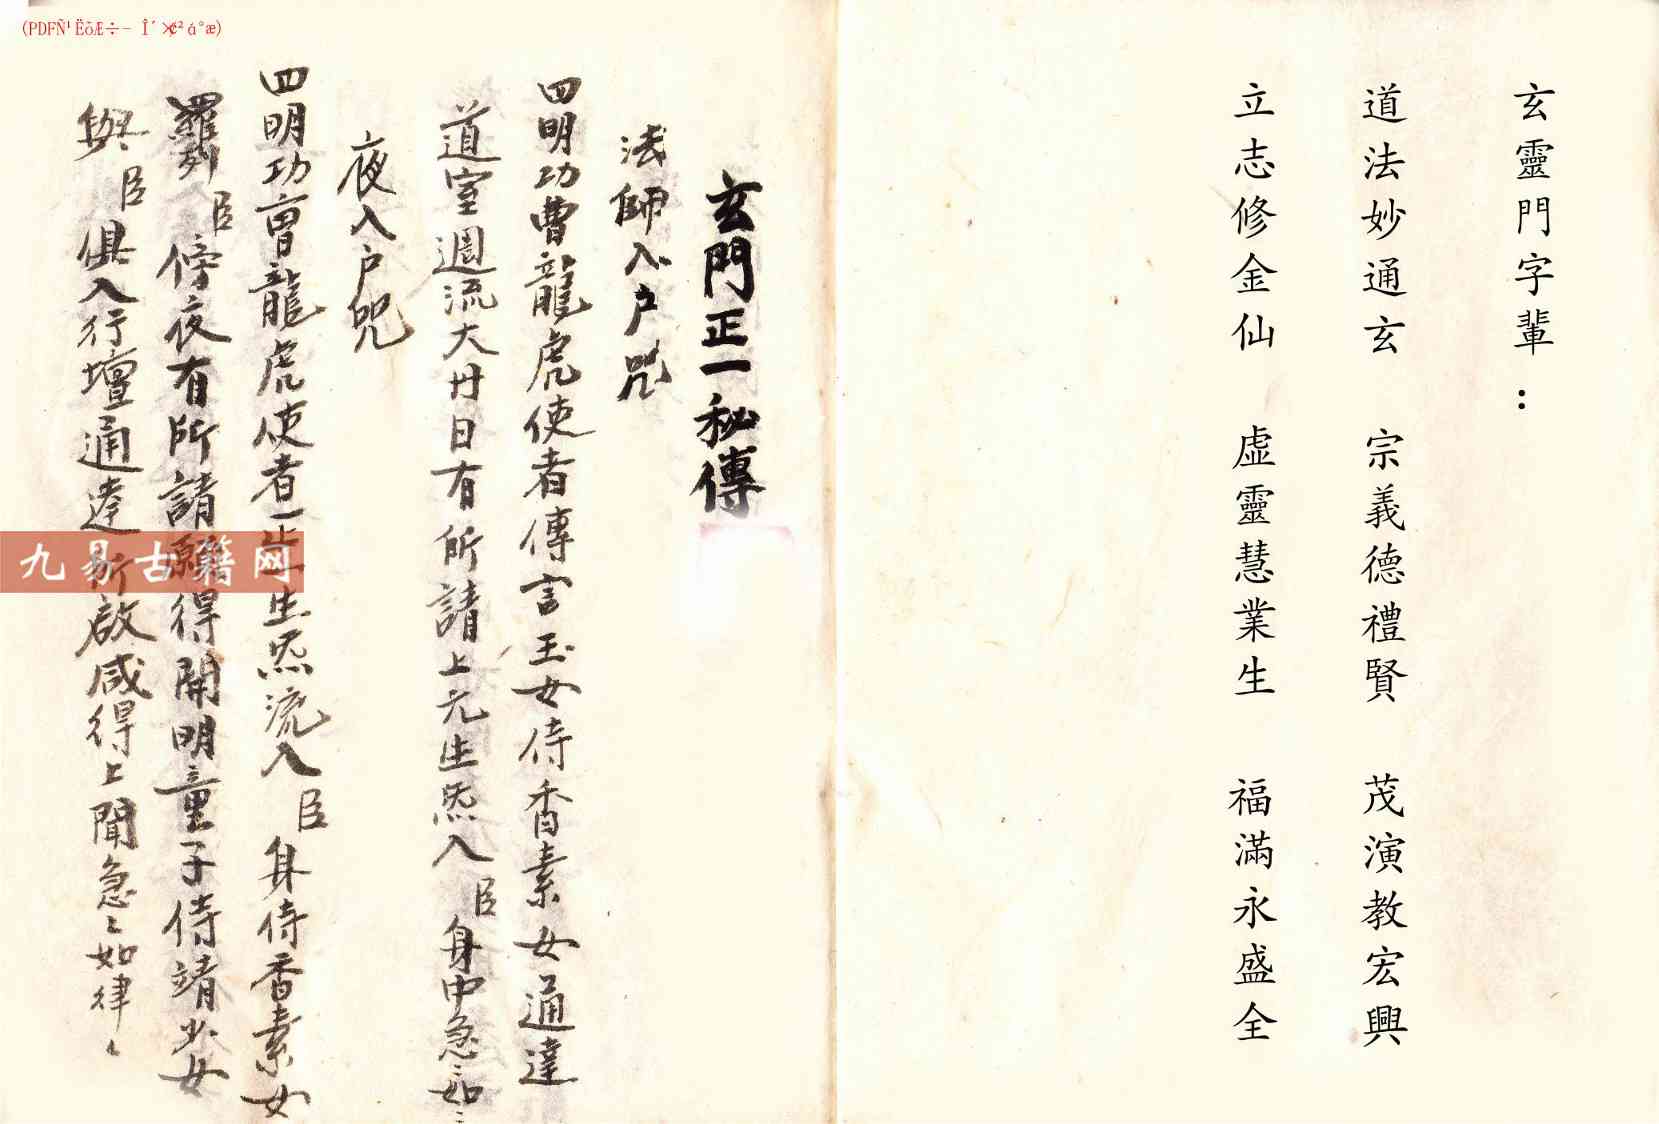 (PDFÑ¹ËõÆ÷- Î´×¢²á°æ)
玄靈門字輩：
道法妙通玄　宗義德禮賢　茂演教宏興
立志修金仙　虛靈慧業生　福滿永盛全
玄門正一秘傳
法師入户咒
四明功曹龍虎使者傳言玉女侍香素女通達
道室週流大廿日有所請上元生炁入臣身中急〻如〻
夜入户咒
四明功曹龍虎使者一止生炁流入臣身侍香素女
羅列臣傍夜有所請願得開明童子侍靖少女
與臣俱入行壇通達所啟咸得上聞急〻如律〻
九易古籍网